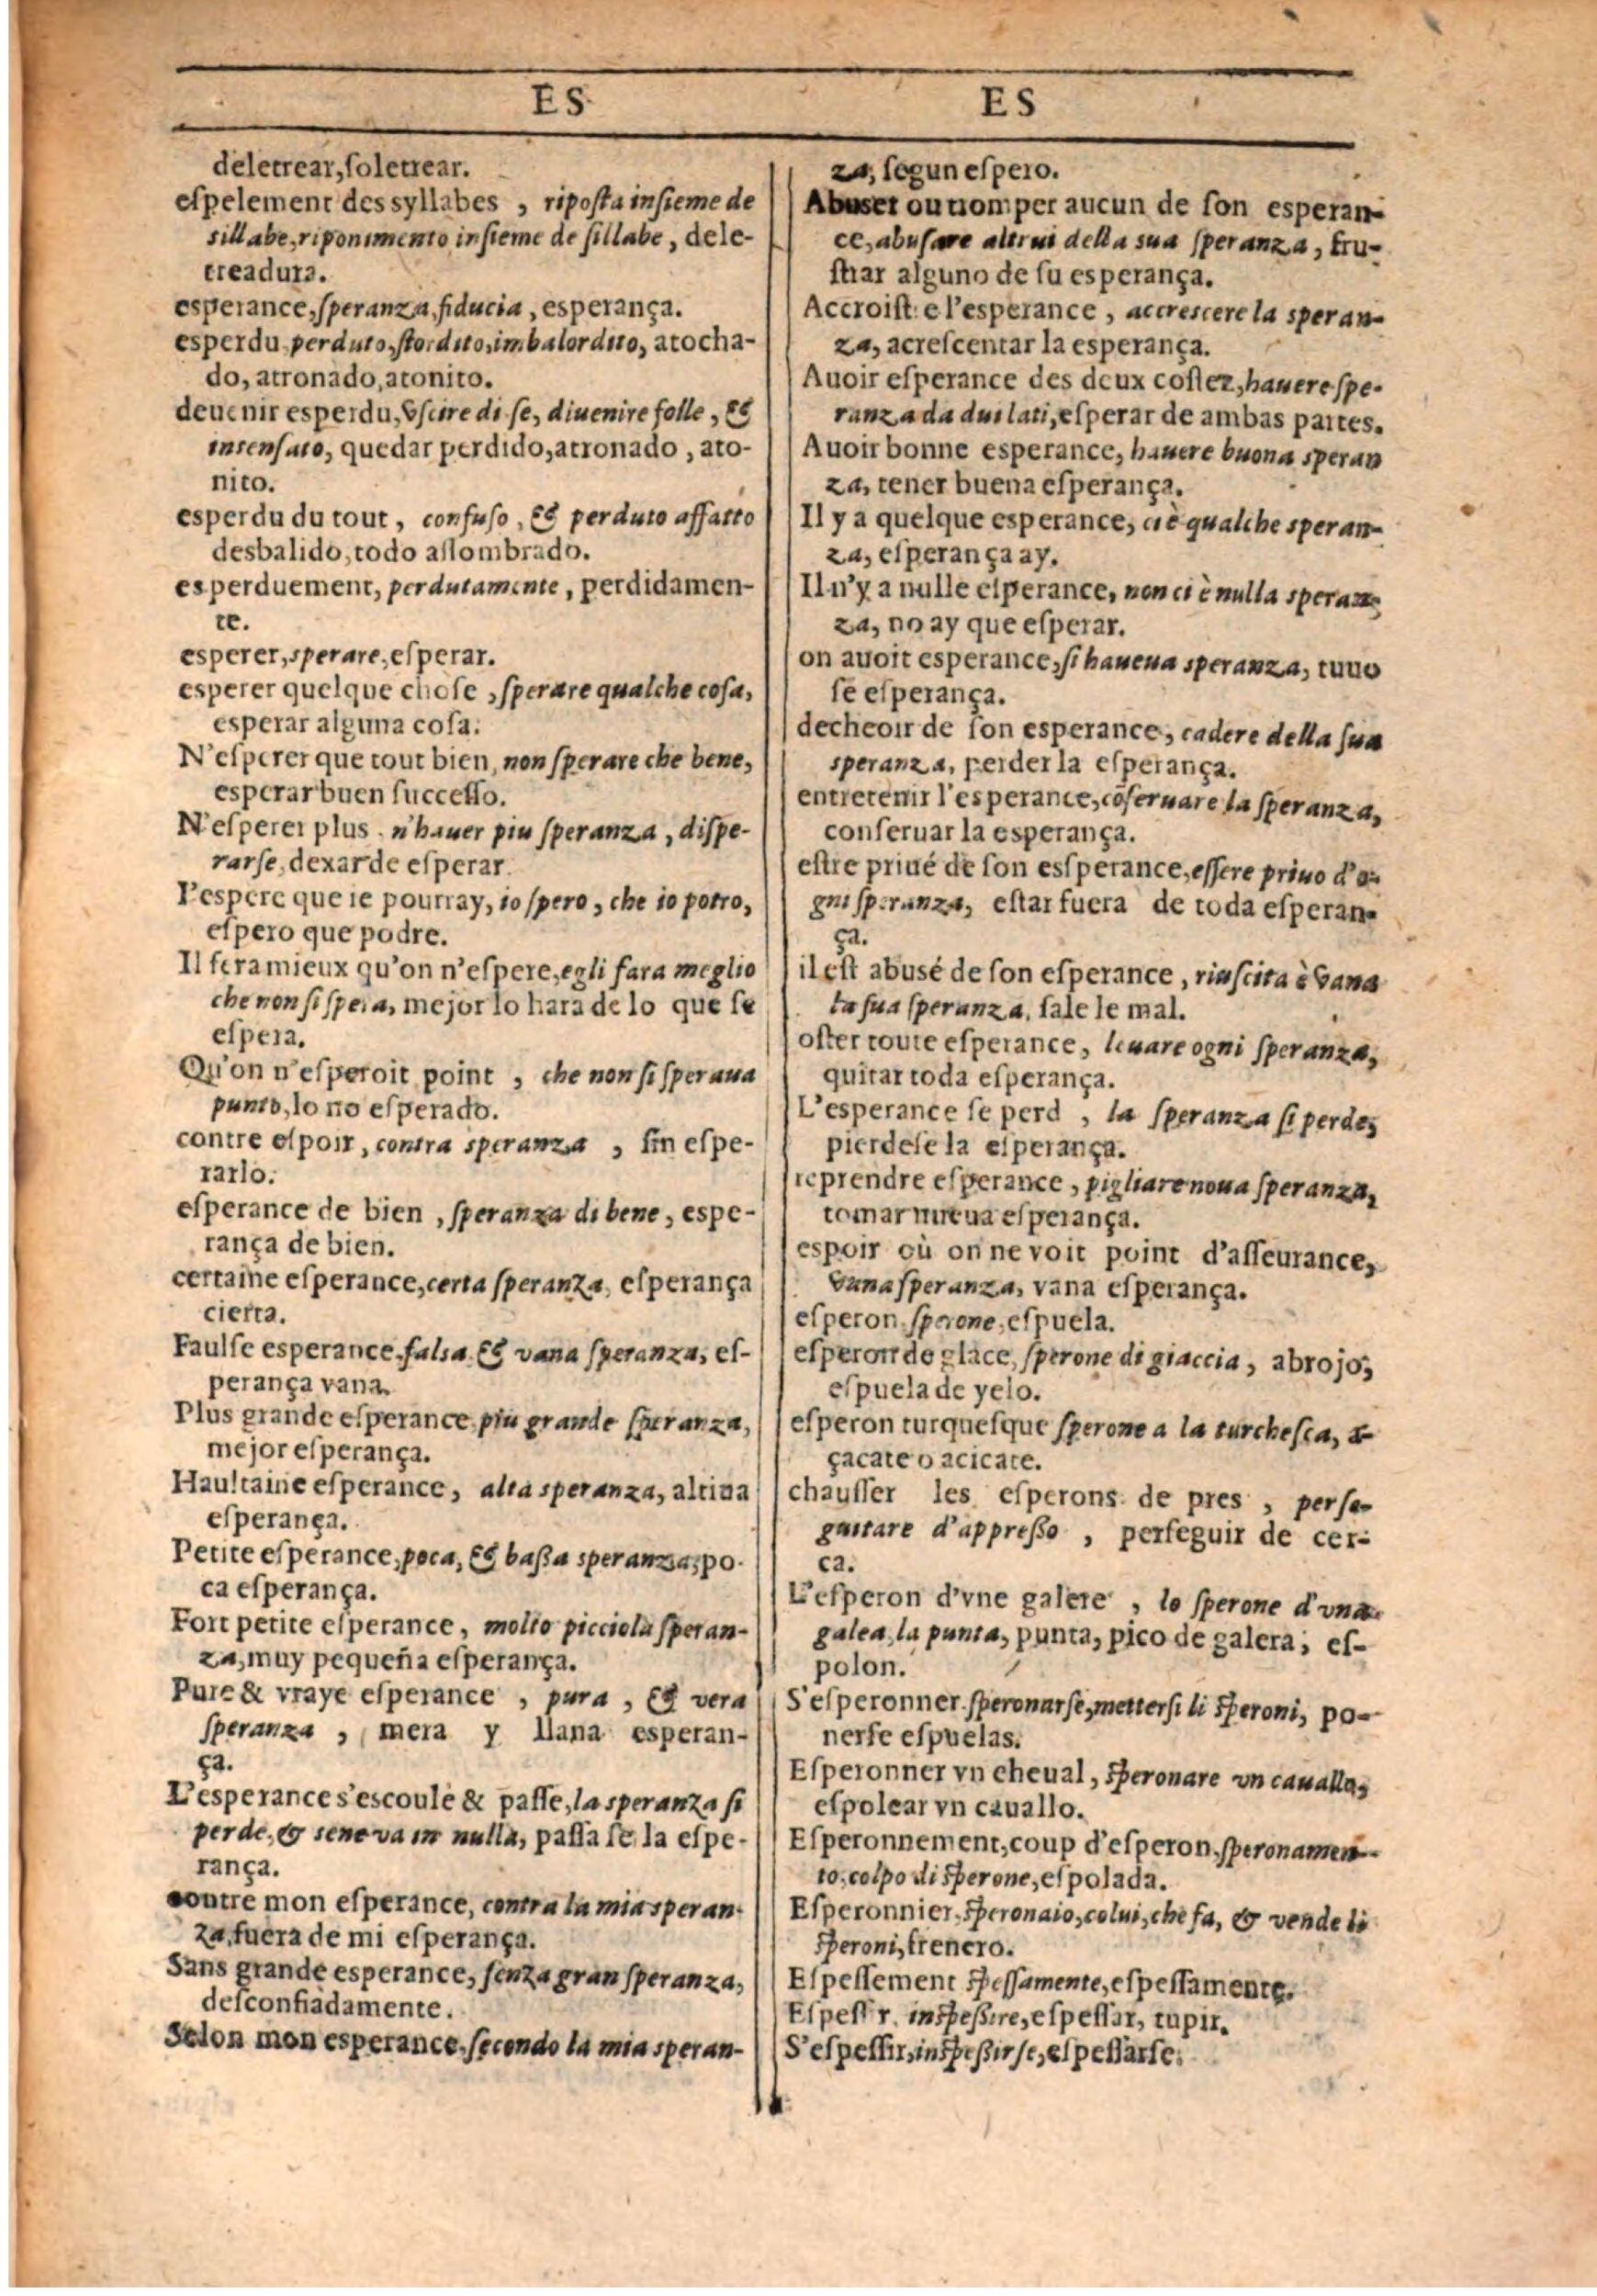 ES
ES
deletrear, ſoletrear.
eſpelement des syllabes , ripoſta inſieme de
sillabe, riponimento inſieme de ſillabe, dele-
treadura.
esperance, ſperanza, fiducia, esperança.
esperdu, perduto, ſtordito, imbalordito, atocha-
do, atronado, atonito.
deuenir esperdu, vſcire di ſe, diuenire folle, &
intenſato, quedar perdido, atronado, ato-
nito.
esperdu du tout, confuſo, & perduto affatto
desbalido, todo aſſombrado.
esperduement, perdutamente, perdidamen-
te.
esperer, sperare, eſperar.
esperer quelque choſe, ſperare qualche coſa,
esperar alguna coſa.
N'eſperer que tout bien, non ſperare che bene,
esperar buen ſucceſſo.
N'eſperer plus, n'hauer piu ſperanza, diſpe-
rarſe, dexar de eſperar.
I'espere que ie pourray, io ſpero, che io potro,
eſpero que podre.
Il fera mieux qu'on n'eſpere, egli fara meglio
che non ſi ſpera, mejor lo hara de lo que ſe
eſpera.
Qu'on n'eſperoit point , che non ſi ſperaua
punto, lo no eſperado.
contre eſpoir, contra speranza , ſin eſpe-
rarlo.
eſperance de bien, ſperanza di bene, eſpe-
rança de bien.
certaine eſperance, certa ſperanza, eſperança
cierta.
Faulſe esperance, falsa & vana ſperanza, eſ-
perança vana.
Plus grande eſperance, piu grande ſperanza,
mejor eſperança.
Haultaine eſperance, alta speranza, altiua
eſperança.
Petite eſperance, poca, & baßa speranza, po-
ca eſperança.
Fort petite eſperance, molto picciola ſperan-
za, muy pequeña eſperança.
Pure & vraye eſperance , pura , & vera
ſperanza , mera y llana esperan-
ça.
L'esperance s'escoule & paſſe, la speranza ſi
perde, & sene va in nulla, paſſa ſe la eſpe-
rança.
contre mon eſperance, contra la mia speran-
za, fuera de mi eſperança.
Sans grande esperance, ſenza gran ſperanza,
deſconfiadamente.
Selon mon esperance, ſecondo la mia speran-
za, ſegun eſpero.
Abuser ou tromper aucun de ſon esperan-
ce, abuſare altrui della sua ſperanza, fru-
ſtrar alguno de ſu esperança.
Accroiſtre l'esperance , accrescere la speran-
za, acreſcentar la esperança.
Auoir eſperance des deux coſtez, hauere ſpe-
ranza da dui lati, eſperar de ambas partes.
Auoir bonne esperance, hauere buona speran
za, tener buena eſperança.
Il y a quelque esperance, ci è qualche speran-
za, eſperança ay.
Il n'y a nulle eſperance, non ci è nulla speran-
za, no ay que eſperar.
on auoit esperance, ſi haueua speranza, tuuo
ſe eſperança.
decheoir de ſon esperance, cadere della ſua
speranza, perder la eſperança.
entretenir l'esperance, cõſeruare la ſperanza,
conſeruar la esperança.
eſtre priué de ſon esſperance, eſſere priuo d'o-
gni ſperanza, eſtar fuera de toda eſperan-
ça.
il eſt abusé de ſon eſperance, riuſcita è vana
la ſua ſperanza, ſale le mal.
oſter toute eſperance, leuare ogni ſperanza,
quitar toda eſperança.
L'esperance ſe perd , la ſperanza ſi perde,
pierdeſe la eſperança.
reprendre eſperance, pigliare noua ſperanza,
tomar nueua eſperança.
espoir où on ne voit point d'aſſeurance,
vana ſperanza, vana eſperança.
eſperon, ſperone, eſpuela.
eſperon de glace, ſperone di giaccia, abrojo,
eſpuela de yelo.
eſperon turqueſque ſperone a la turcheſca, a-
çacate o acicate.
chauſſer les eſperons de pres , perſe-
guitare d'appreßo , perſeguir de cer-
ca.
L'eſperon d'vne galere , lo ſperone d'vna
galea, la punta, punta, pico de galera, eſ-
polon.
S'eſperonner, ſperonarſe, metterſi li ſperoni, po-
nerſe eſpuelas.
Eſperonner vn cheual, ſperonare vn cauallo,
eſpolear vn cauallo.
Eſperonnement, coup d'eſperon, ſperonamen-
to, colpo di ſperone, eſpolada.
Eſperonnier, ſperonaio, colui, che fa, & vende li
ſperoni, frenero.
Eſpeſſement ſpeſſamente, eſpeſſamente.
Eſpeſſir, inſpeßire, eſpeſſar, tupir.
S'eſpeſſir, inſpeßirſe, eſpeſſarſe.